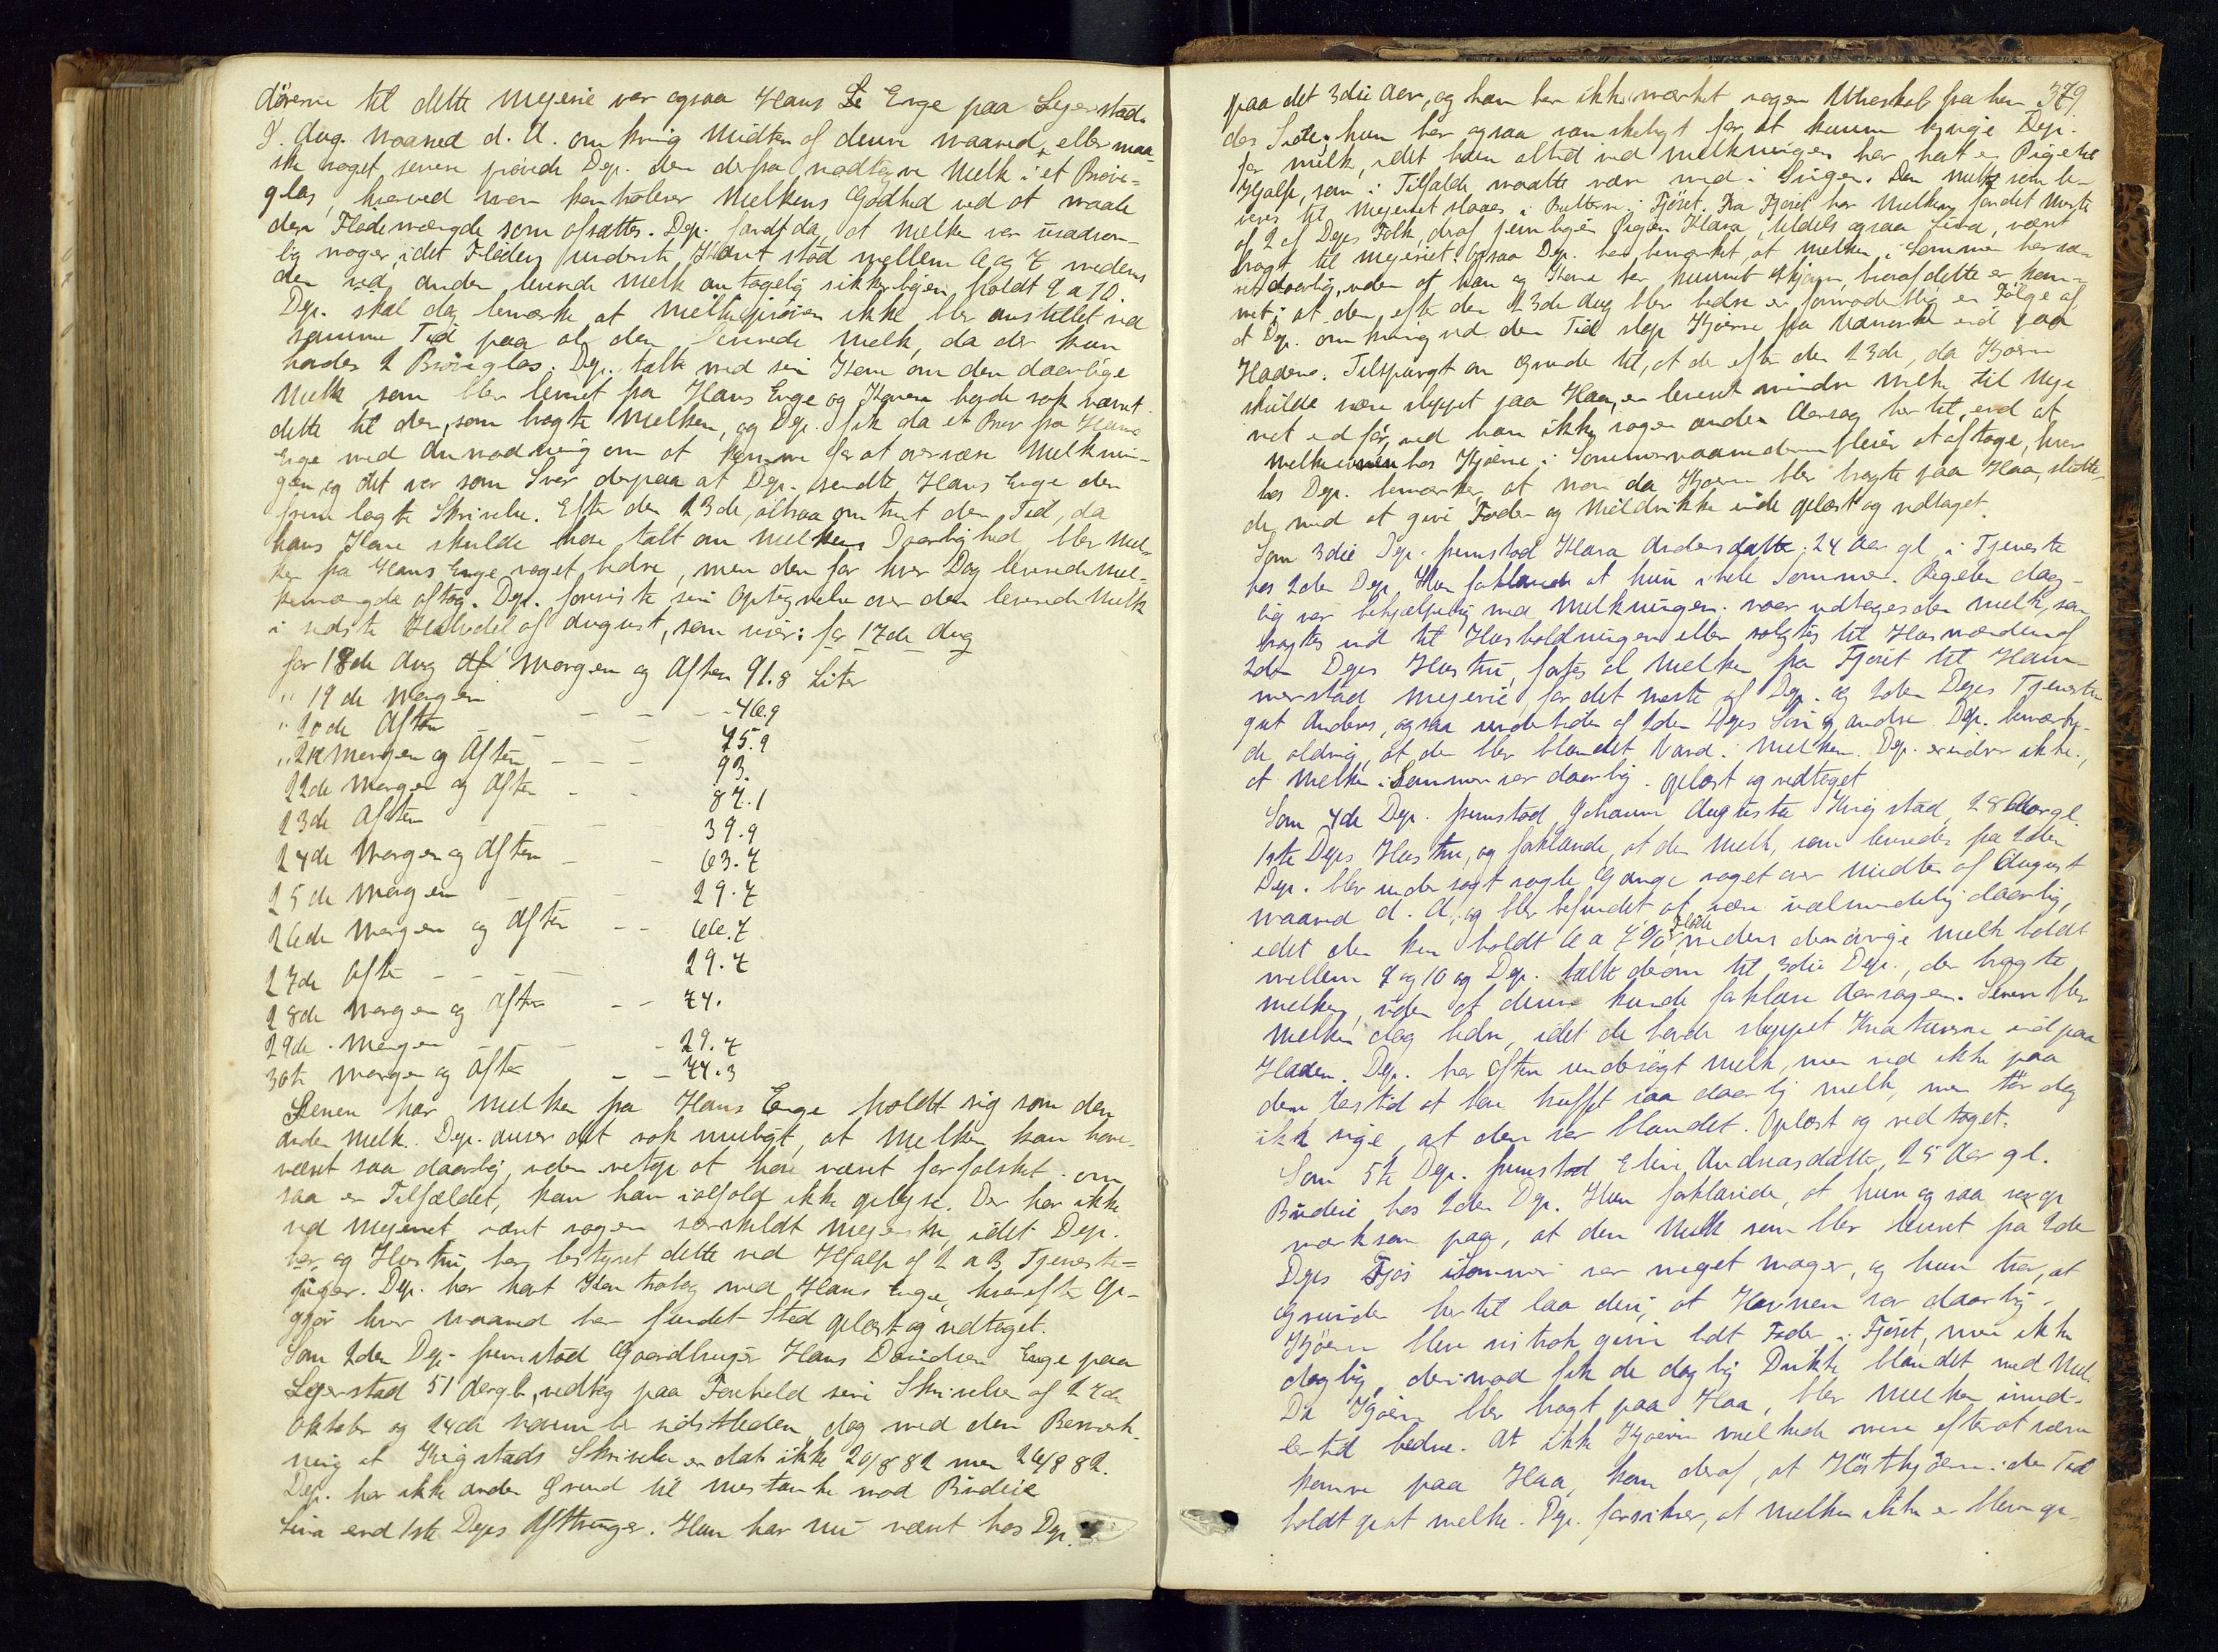 dörerne til dette Mejerie var ogsaa Hans Enge paa Lejerstad.
I Aug. Maaned d. A. omkring Midten af denne Maaned, eller maa-
ske noget senere prövede Dep. den derfra modtagne Melk i et Pröve-
glas, hvorved man kontrolerer Melkens Godhed ved at maale
den Flödemængde som afsættes. Dep. fandt da at Melken var usædvan-
lig mager, idet Flöden omtrent stod mellem 6 og 7 medens
den anden leverede Melk antagelig sikkerligen holdt 9 a 10.
Dep. skal dog bemærke at Melkepröven ikke blev anstillet ved
samme Tid paa al den leverede Melk, da der kun
havdes 2 Pröveglas. Dep. talte med sin Kone om den daarlige
Melk som blev leveret fra Hans Enge og Konen havde nok nævnt
dette til den, som bragte Melken, og Dep. fik da et Brev fra Hans
Enge med Anmodning om at komme for at overvære Melknin-
gen, og det var som Svar derpaa at Dep. sendte Hans Enge den
fremlagte Skrivelse. Efter den 23de, altsaa omtrent den Tid, da
hans Kone skulde have talt om Melkens Daarlighed blev Mel-
ken fra Hans Enge noget bedre, men den for hver Dag leverede Mel-
kemængde aftog. Dep. foreviste sin Optegnelse over den leverede Melk
i sidste Halvdel af August, som viser: for 17de Aug
for 18de Aug Morgen og Aften 91.8 Liter
" 19de Morgen
" 20de Aften - - - - 46.9
" 21de Morgen og Aften - - - 45.9
22de Morgen og Aften - - 93.
23de Aften - - 87.1
24de Morgen og Aften - - 39.9
25de Morgen - - 63.7
26de Morgen og Aften - - 29.7
27de Aften - - - 66.7
28de Morgen og Aften - - 29.7
29de Morgen - - 74.
30te Morgen og Aften - - 29.7
74.3
Senere har Melken fra Hans Enge holdt sig som den
anden Melk. Dep. anser det nok muligt, at Melken kan have
været saa daarlig, uden netop at have været forfalsket; om
saa er Tilfældet, kan han ialfald ikke oplyse. Der har ikke
ved Mejeriet været nogen særskildt Mejerske, idet Dep.
og Hustru har bestyret dette ved Hjælp af 2 a 3 Tjeneste-
piger. Dep. har havt Kontrakt med Hans Enge, hvorefter Op-
gjör hver Maaned har fundet Sted. oplæst og vedtaget.
Som 2den Dep. fremstod Gaardbruger Hans Davidsen Enge paa
Lejerstad 51 Aar gl., vedtog paa Forehold sine Skrivelser af 27de
Oktober og 24de November sidstleden, dog med den Bemærk-
ning at Krigstads Skrivelse er dat ikke 20/8 82 men 26/8 82.
Dep. har ikke anden Grund til Mistanke mod Budeie
end 1ste Deps Ytringer. Hun har nu været hos Dep.
379
paa det 3die Aar, og han har ikke mærket nogen Uærskab fra hen-
des Side, hun har ogsaa vanskeligt for at kunne bedrage Dep.
for Melk, idet hun altid ved Melkningen har havt en Pige til
Hjælp, som i Tilfælde maatte være med i Svigen. Den Melk som le-
veres til Mejeriet slaaes i Bötterne i Fjöset. Fra Fjöset har Melken for det Meste
af 2 af Deps Folk, deraf Pigen Klara, tildels ogsaa, været
bragt til Mejeriet. Ogsaa Dep. har bemærket, at Melken i Sommer har væ-
ret daarlig, uden at han og Kone har kunnet skjönne, hvoraf dette er kom-
met; at den efter den 23de Aug blev bedre er formodentlig en Fölge af
at Dep. omkring ved den Tid slap Kjörene fra Udmarken ind paa
Haaen. Tilspurgt om Grunde til, at de efter den 23de, da Kjörene
skulde være sluppet paa Haa, er leveret mindre Melk til Meje-
riet end för, ved han ikke nogen anden Aarsag hertil, end at
Melkeevnen hos Kjörene i Sommermaanederne pleier at aftage, hver
hos Dep. bemærker, at man da Kjörene blev bragte paa Haa, slutte-
de med at give Foder og Meldrikke inde. oplæst og vedtaget.
Som 3die Dep. fremstod Klara Andersdatter, 24 Aar gl. i Tjeneste
hos 2den Dep. Hun forklarede at hun i hele Sommer. Regelen dag-
lig var behjælpelig ved Melkningen. naar undtages den Melk, som
bragtes ud til Husholdningen eller solgtes til Husmændene af
2den Deps Hustru, förtes al Melken fra Fjöset til Ham-
merstad Mejerie, for det meste af Dep. og 2den Deps Tjeneste-
gut Anders, ogsaa undertiden af 2den Deps Sön og andre. Dep. bemærke-
de aldrig, at der blev blandet Vand i Melken. Dep. erindrer ikke,
at Melken i Sommer var daarlig. oplæst og vedtaget
Som 4de Dep. fremstod Johanne Augusta Krigstad, 28 Aar gl.
1ste Deps Hustru, og forklarede, at den Melk, som leveredes fra 2den
Dep. blev undersögt nogle Gange noget over Midten af August
Maaned d. A., og blev befundet at være ualmindelig daarlig,
idet den kun holdt 6 a 7 % Flöde, medens den övrige Melk holdt
mellem 9 og 10 og Dep. talte derom til 3die Dep., der bragte
Melken, uden at denne kunde forklare Aarsagen. Senere blev
Melken dog bedre, idet de havde sluppet Kreaturerne ind paa
Haaen. Dep. har oftere undersögt Melk, men ved ikke paa
den Aarstid at have truffet saa daarlig Melk, men tör dog
ikke sige, at den var blandet. Oplæst og vedtaget.
Som 5te Dep. fremstod Eline Andreasdatter, 25 Aar gl.
Budeie hos 2den Dep. Hun forklarede, at hun ogsaa var op-
mærksom paa, at den Melk som blev leveret fra 2de
Deps Fjös isommer var meget mager, og hun tror, at
Grunden hertil laa deri, at Havnen var daarlig.
Kjörene blev vistnok givne lidt Foder i Fjöset, men ikke
daglig, derimod fik de daglig Drikke blandet med Mel.
Da Kjörene blev bragt paa Haa, blev Melken imid-
lertid bedre. At ikke Kjörene melkede mere efterat være
komne paa Haa, kom deraf, at Höstkjörene i den Tid
holdt op at melke. Dep. forsikrer, at Melken ikke er bleven op-